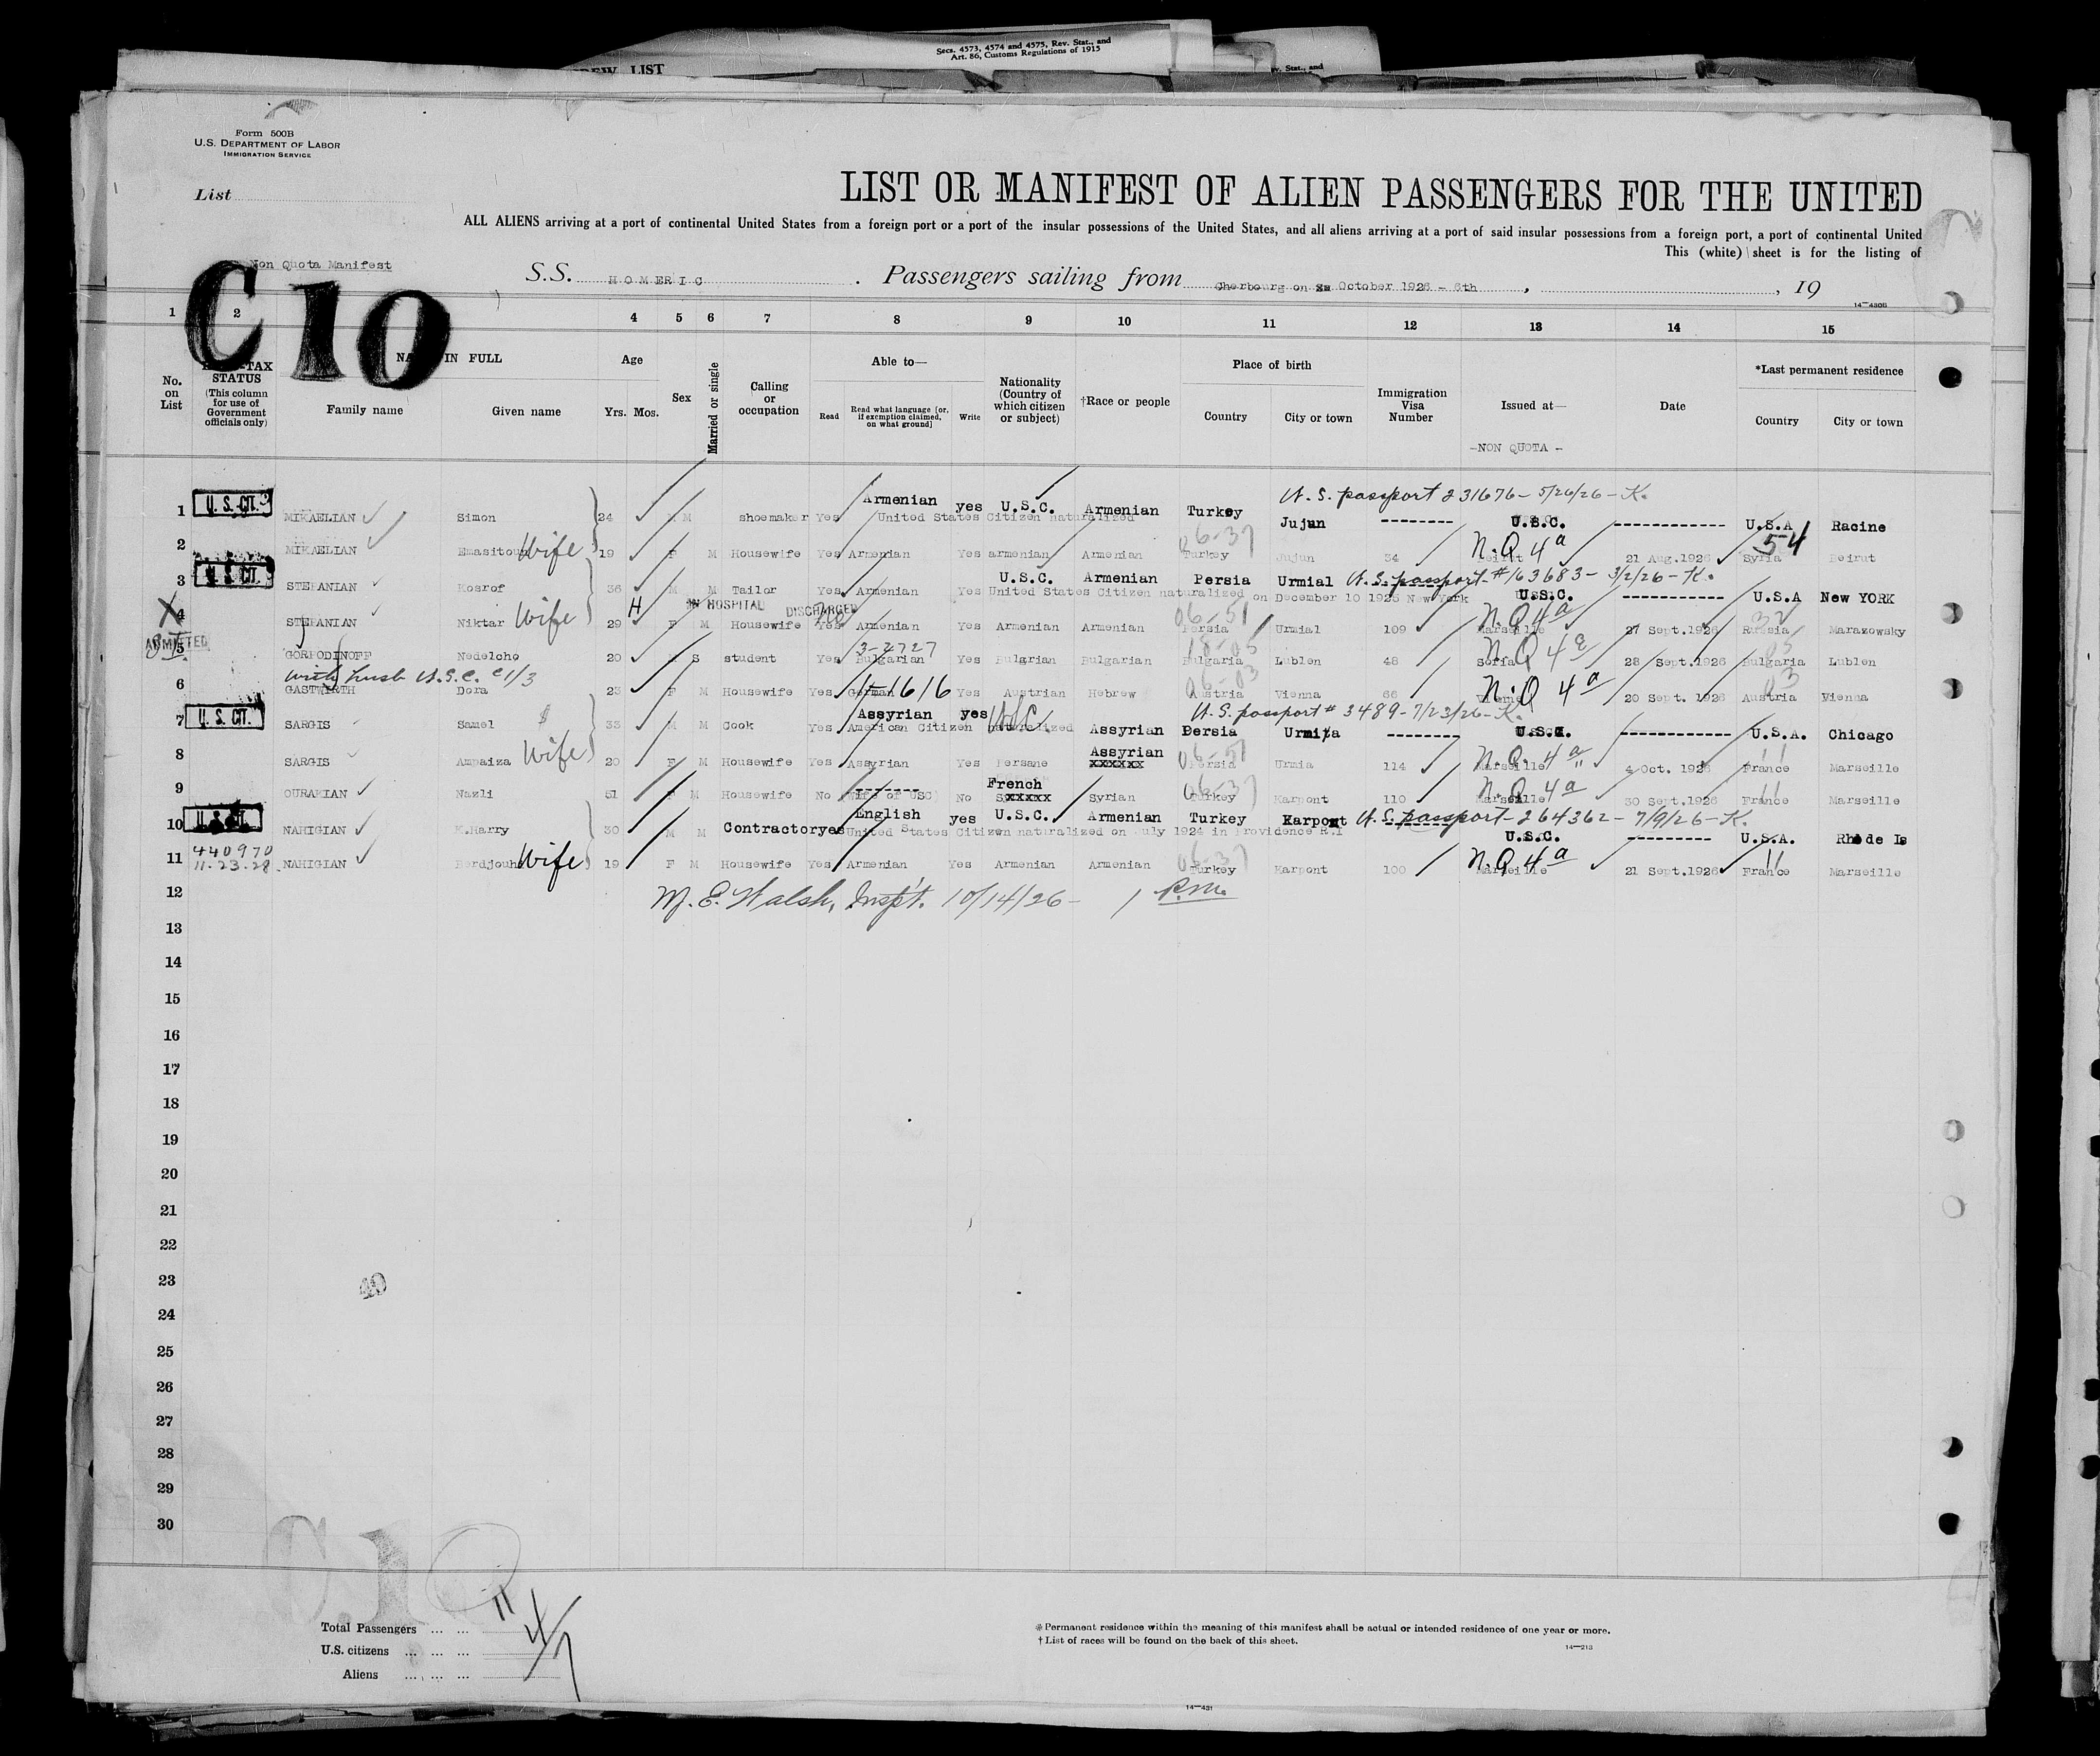 Secs. 4573, 4574 and 4575, Rev. Stat., and
Art. 86, Customs Regulations of 1915
CREW LIST
Rev. Stat., and
Form 500B
U.S. DEPARTMENT OF LABOR
IMMIGRATION SERVICE
List
LIST OR MANIFEST OF ALIEN PASSENGERS FOR THE UNITED
ALL ALIENS arriving at a port of continental United States from a foreign port or a port of the insular possessions of the United States, and all aliens arriving at a port of said insular possessions from a foreign port, a port of continental United
This (white) sheet is for the listing of
Non Quota Manifest
C10
S.S. HOMERIC . Passengers sailing from Cherbourg on October 1926 - 6th , , 19
14—430B
1 2 4 5 6 7 8 9 10 11 12 13 14 15
No. on List
STATUS (This column for use of Government officials only)
IN FULL
Family name
Given name
Age
Yrs. Mos.
Sex
Married or single
Calling or occupation
Able to—
Read
Read what language [or, if exemption claimed, on what ground]
Write
Nationality (Country of which citizen or subject)
†Race or people
Place of birth
Country
City or town
Immigration Visa Number
Issued at—
Date
*Last permanent residence
Country
City or town
-NON QUOTA -
U.S. passport 231676 - 5/26/26 - K.
1 U.S. CIT. MIKAELIAN Simon 24 M M shoemaker Yes Armenian yes U.S.C. Armenian Turkey Jujun -------- U.S.C. ------------ U.S.A Racine
United States Citizen naturalized
2 MIKAELIAN Wife 19 F M Housewife Yes Armenian Yes armenian Armenian 06-37 Turkey Jujun 34 N.Q 4a Beirut 21 Aug.1926 54 Syria Beirut
3 U.S. CIT. STEPANIAN Kosrof 36 M M Tailor Yes Armenian Yes U.S.C. Armenian Persia Urmial U.S. passport #163683 - 3/2/26 - K. U.S.C. ----------- U.S.A New YORK
United States Citizen naturalized on December 10 1925 New York
IN HOSPITAL DISCHARGED
4 STEPANIAN Niktar Wife 29 F M Housewife Yes Armenian Yes Armenian Armenian 06-51 Persia Urmial 109 N.Q 4a Marseille 27 Sept.1926 32 Russia Marazowsky
ADMITTED
5 GORPODINOFF Nedelcho 20 M S student Yes 3-2727 Bulgarian Yes Bulgrian Bulgarian 18-05 Bulgaria Lublen 48 N.Q 4e Sofia 28 Sept.1926 05 Bulgaria Lublen
with husb U.S.C. C1/3
6 GASTWIRTH Dora 23 F M Housewife Yes German 1616 Yes Austrian Hebrew 06-03 Austria Vienna 66 N.Q 4a Vienna 20 Sept. 1926 03 Austria Vienna
U.S. passport # 3489 - 7/23/26 - K.
7 U.S. CIT. SARGIS Samel 33 M M Cook Yes Assyrian yes USC Assyrian Persia Urmita -------- U.S.C. ------------ U.S.A. Chicago
American Citizen naturalized
8 SARGIS Ampaiza Wife 20 F M Housewife Yes Assyrian Yes Persane Assyrian xxxxxx 06-51 Persia Urmia 114 N.Q. 4a Marseille 4 Oct. 1926 11 France Marseille
9 OURAKIAN Nazli 51 F M Housewife No wife of USC No French xxxxx Syrian 06-37 Turkey Karpont 110 N.Q 4a Marseille 30 Sept.1926 11 France Marseille
10 NAHIGIAN K.Harry 30 M M Contractor yes English yes U.S.C. Armenian Turkey Karpont U.S. passport - 264362 - 7/9/26 - K. U.S.C. --------- U.S.A. Rhode Is
United States Citizen naturalized on July 1924 in Providence R.I
440970
11-23-28.
11 NAHIGIAN Berdjouhi Wife 19 F M Housewife Yes Armenian Yes Armenian Armenian 06-37 Turkey Karpont 100 N.Q 4a Marseille 21 Sept.1926 11 France Marseille
12 M. E. Walsh, Inspt. 10/14/26 - 1 P.M.
13
14
15
16
17
18
19
20
21
22
23
24
25
26
27
28
29
30
40
C.10
Total Passengers ... ... 11
U.S. citizens ... ... ... 4
Aliens ... ... ... 7
* Permanent residence within the meaning of this manifest shall be actual or intended residence of one year or more.
† List of races will be found on the back of this sheet.
14—213
14—431